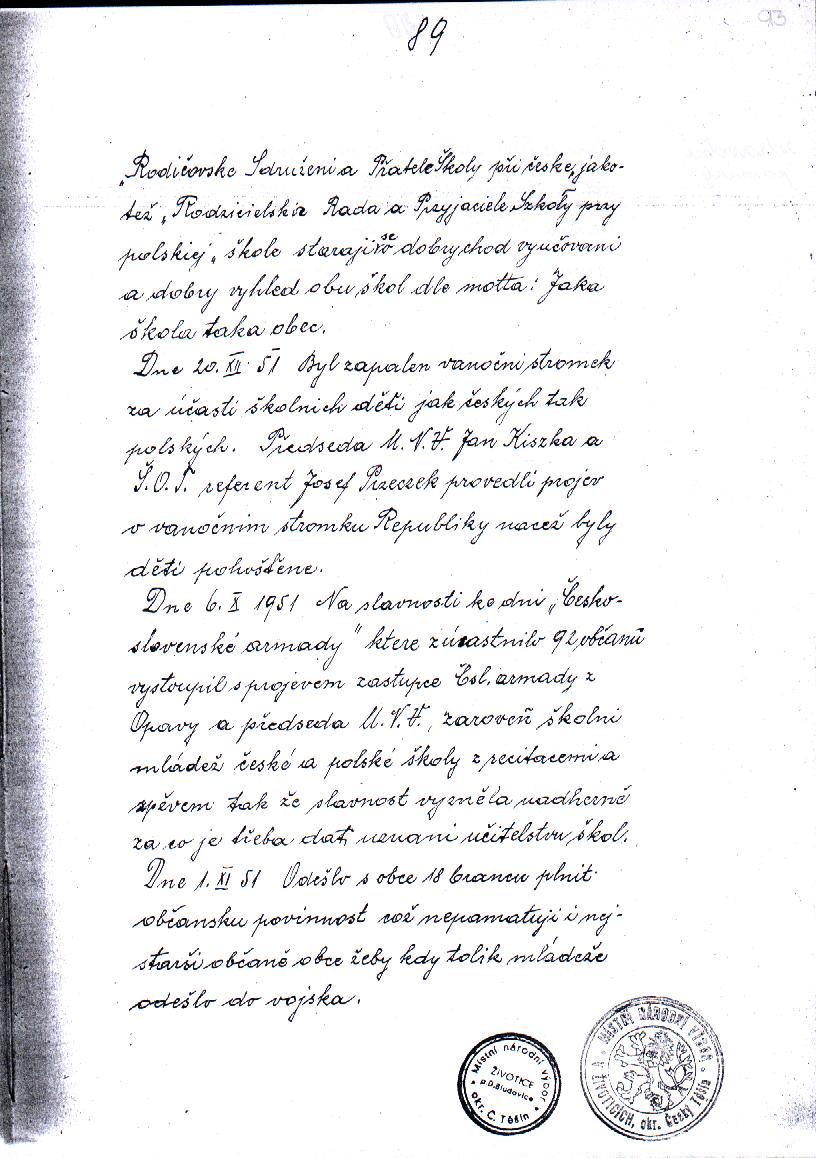 89
93
„Rodičovske Sdruženi a Přatele Školy při česke, jako-
tež „Rodzicielska Rada a Przyjaciele Szkoły przy
polskiej„ škole staraji se o dobrychod vyučovani
a dobry vyhled obu škol dle motta: Jaka
škola taka obec.
Dne 20. XII. 51 Byl zapalen vanočni stromek
za účasti školnich děti jak českých tak
polských. Předseda M.N.V. Jan Kiszka a
Š.O.T. referent Josef Przeczek provedli projev
o vanočnim stromku Republiky nacež byly
děti pohoštěne.
Dne 6. X 1951 Na slavnosti ke dni „Česko-
slovenské armady" ktere zúčastnilo 92 občanů
vystoupil s projevem zastupce Čsl. armady z
Opavy a předseda M.N.V., zaroveň školni
mládež české a polské školy z recitacemi a
zpěvem tak že slavnost vyzněla nadherně
za co je třeba dat uznani učitelstvu škol.
Dne 1. XI 51 Odešlo s obce 18 brancu plnit
občansku povinnost což nepamatuji i nej-
starši občaně obce žeby kdy tolik mládeže
odešlo do vojska.
Místní národní výbor
ŽIVOTICE
p.D.Bludovice
okr. Č. Těšín
MÍSTNÍ NÁRODNÍ VÝBOR
V ŽIVOTICÍCH, okr. Český Těšín